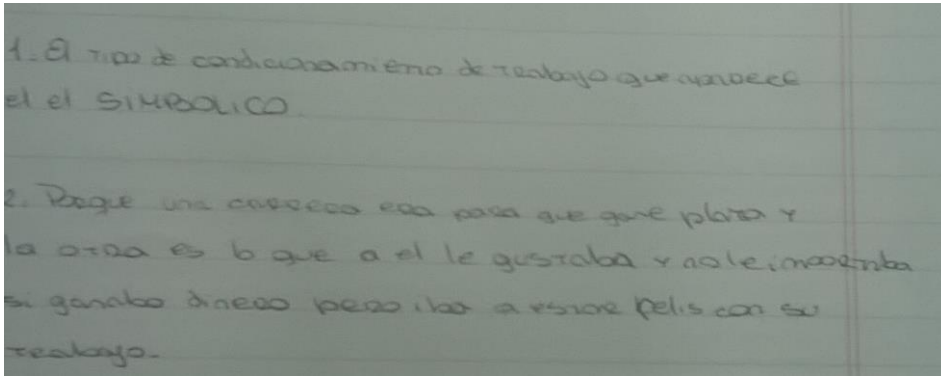 1. El tipo de condicionamiento de trabajo que aparece
el el SIMBOLICO.
2. Porque una carrera era para que gane plata y
la otra es lo que a el le gustaba y no le importaba
si ganaba dinero pero iba a estar felis con su
trabajo.